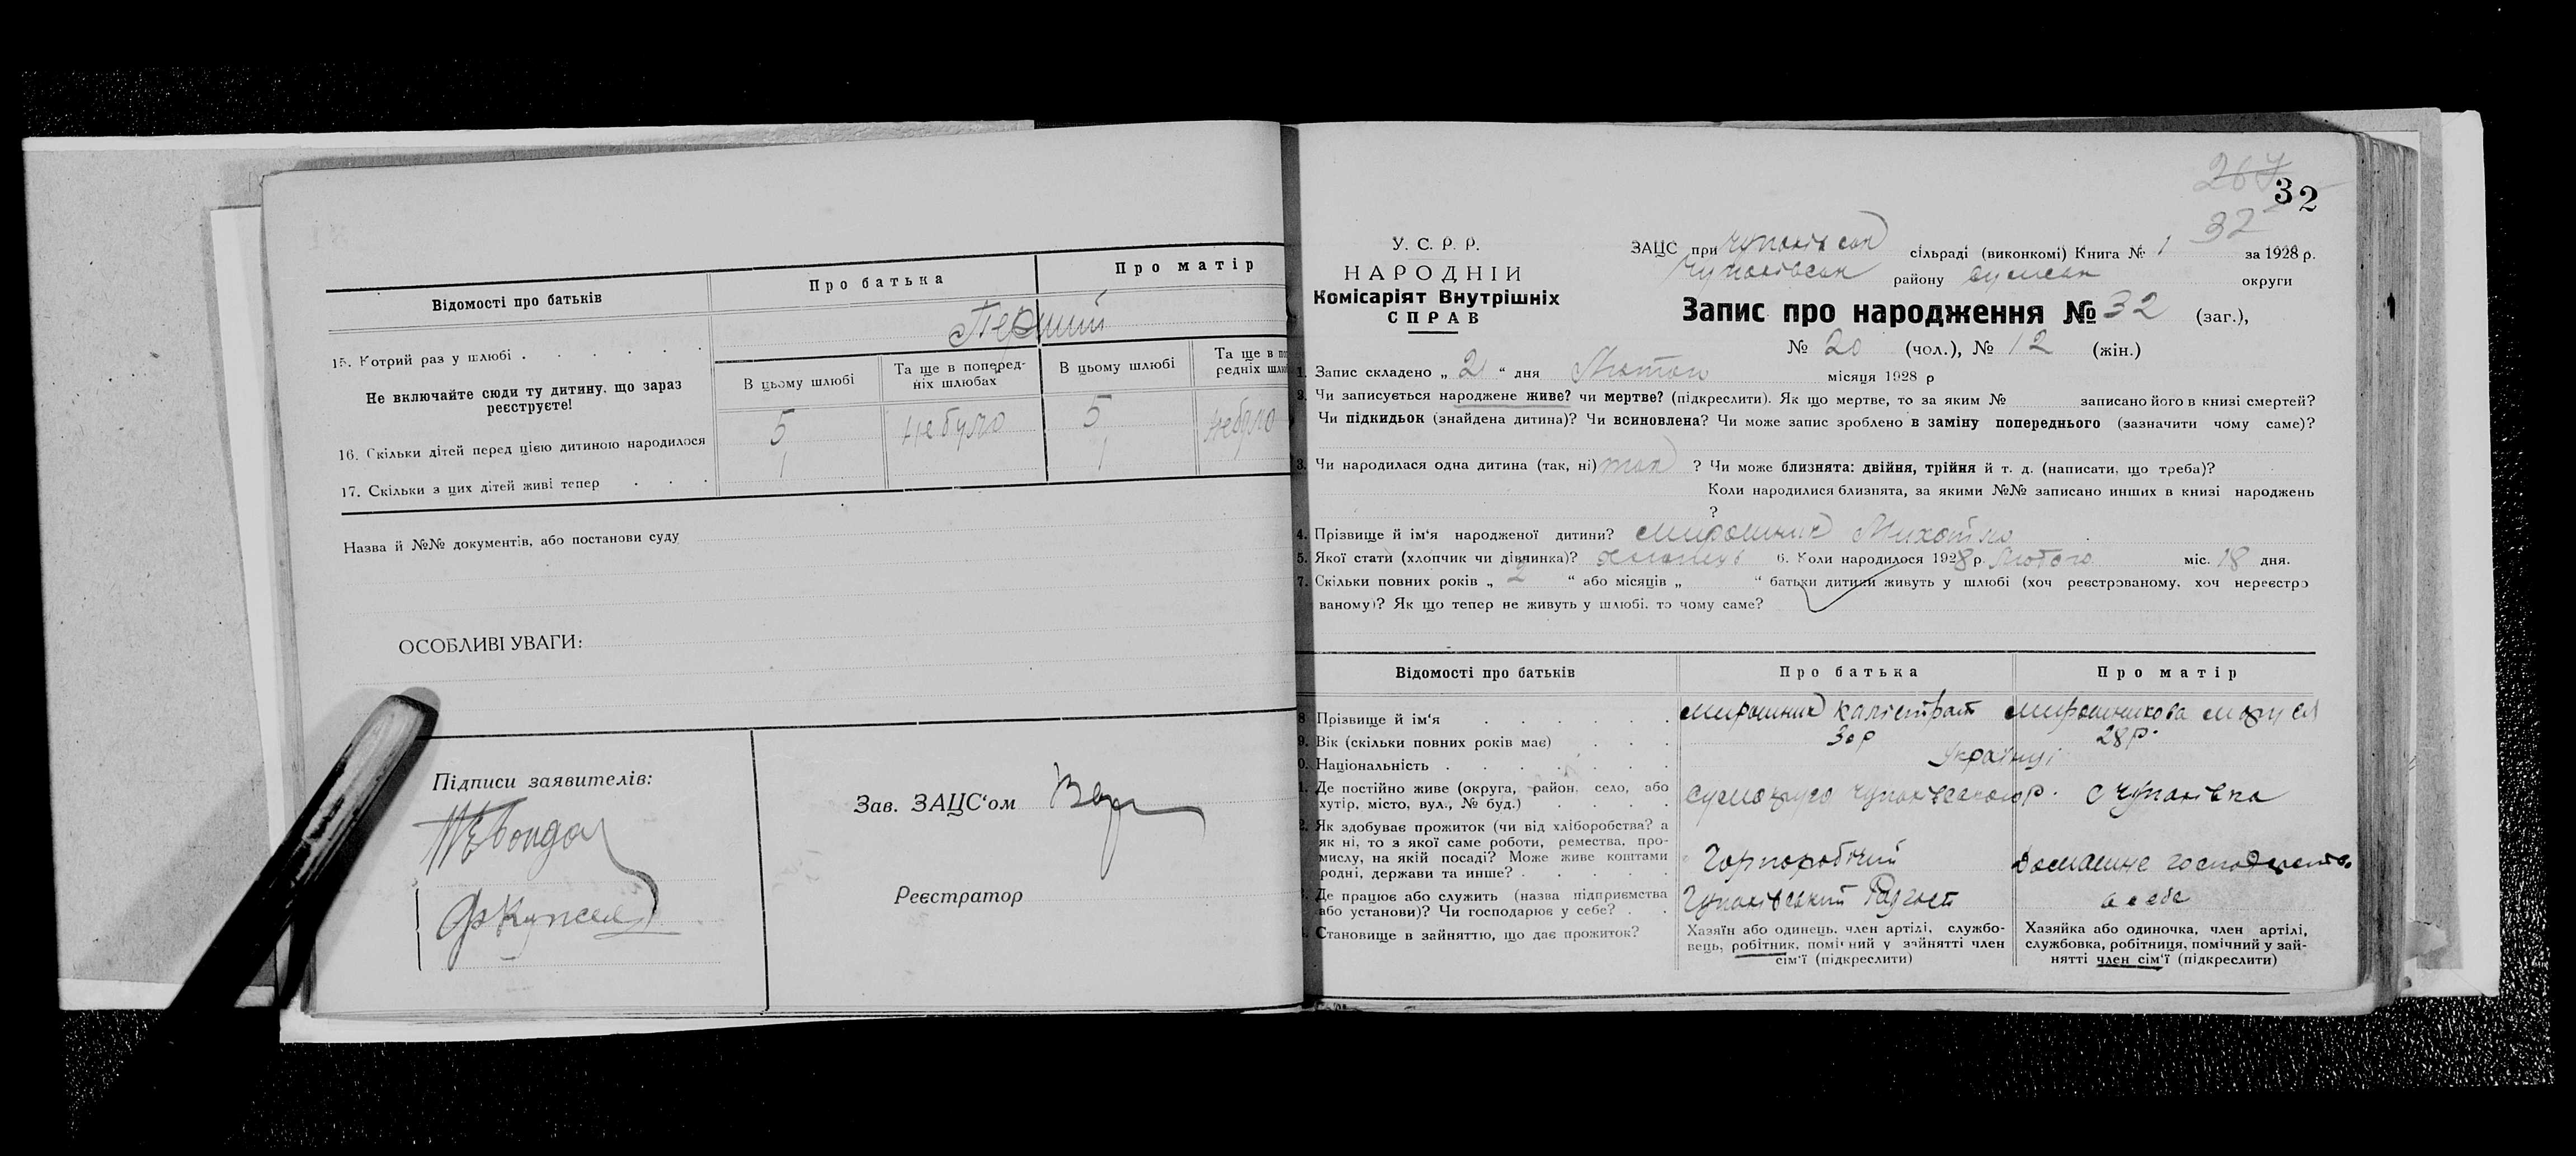 Відомості про батьків
Про батька
Про матір
15. Котрий раз у шлюбі
Перший
Не включайте сюди ту дитину, що зараз
реєструєте!
В цьому шлюбі
Та ще в поперед-
ніх шлюбах
В цьому шлюбі
Та ще в по
редніх шлю
16. Скільки дітей перед цією дитиною народилося
5
не було
5
не було
17. Скільки з цих дітей живі тепер
1
1
Назва й №№ документів, або постанови суду
ОСОБЛИВІ УВАГИ:
Підписи заявителів:
Зав. ЗАЦС‘ом
Реєстратор
267
32
32
У. С. Р. Р.
НАРОДНІЙ
Комісаріят Внутрішніх
СПРАВ
ЗАЦС при Чупахівськ сільраді (виконкомі) Книга № 1 за 1928 р.
Чупахівськ району Сумськ округи
Запис про народження № 32 (заг.),
№ 20 (чол.), № 12 (жін.)
1. Запис складено „ 21 “ дня Лютого місяця 1928 р
2. Чи записується народжене живе? чи мертве? (підкреслити). Як що мертве, то за яким № записано його в книзі смертей?
Чи підкидьок (знайдена дитина)? Чи всиновлена? Чи може запис зроблено в заміну попереднього (зазначити чому саме)?
3. Чи народилася одна дитина (так, ні) так ? Чи може близнята: двійня, трійня й т. д. (написати, що треба)?
Коли народилися близнята, за якими №№ записано инших в книзі народжень
?
4. Прізвище й ім‘я народженої дитини? Мирошник Михайло
5. Якої стати (хлопчик чи дівчинка)? хлопець 6. Коли народилося 1928 р. Лютого міс. 18 дня.
7. Скільки повних років „ 2 “ або місяців „ “ батьки дитини живуть у шлюбі (хоч реєстрованому, хоч нереєстро
ваному)? Як що тепер не живуть у шлюбі, то чому саме?
Відомості про батьків
Про батька
Про матір
8 Прізвище й ім‘я
Мирошник Калістрат
Мирошникова
9. Вік (скільки повних років має)
30 р
28 р.
0. Національність
Українці
1. Де постійно живе (округа, район, село, або
хутір, місто, вул., № буд.)
Чупахівського р.
с Чупахівка
2. Як здобуває прожиток (чи від хліборобства? а
як ні, то з якої саме роботи, ремества, про-
мислу, на якій посаді? Може живе коштами
родні, держави та инше?
Чорноробочий
Домашнє господарство
Де працює або служить (назва підприємства
або установи)? Чи господарює у себе?
Чупахівський Радгосп
в себе
Становище в зайняттю, що дає прожиток?
Хазяїн або одинець, член артілі, службо-
вець, робітник, помічний у зайнятті член
сім‘ї (підкреслити)
Хазяйка або одиночка, член артілі,
службовка, робітниця, помічний у зай-
нятті член сім‘ї (підкреслити)